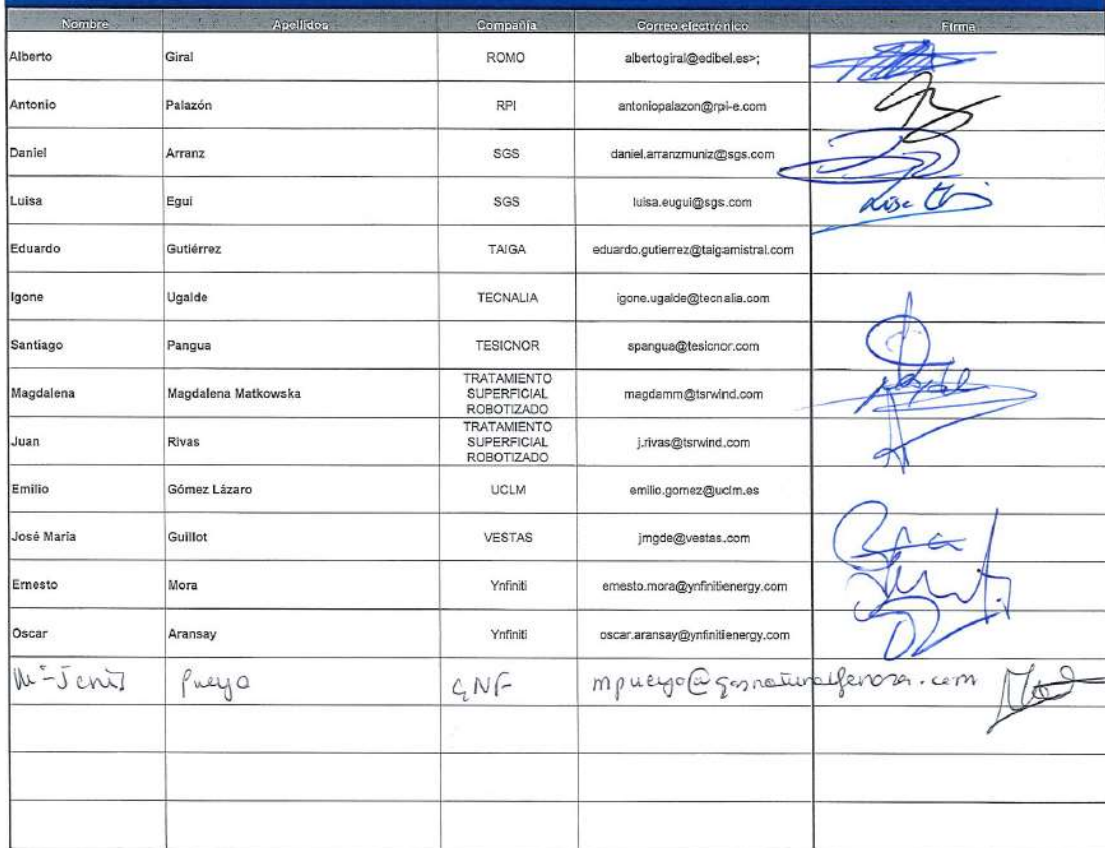 Nombre Apellidos Compañía Correo electrónico Firma
Alberto Giral ROMO albertogiral@edibel.es>;
Antonio Palazón RPI antoniopalazon@rpi-e.com
Daniel Arranz SGS daniel.arranzmuniz@sgs.com
Luisa Egui SGS luisa.eugui@sgs.com
Eduardo Gutiérrez TAIGA eduardo.gutierrez@taigamistral.com
Igone Ugalde TECNALIA igone.ugalde@tecnalia.com
Santiago Pangua TESICNOR spangua@tesicnor.com
Magdalena Magdalena Matkowska TRATAMIENTO SUPERFICIAL ROBOTIZADO magdamm@tsrwind.com
Juan Rivas TRATAMIENTO SUPERFICIAL ROBOTIZADO j.rivas@tsrwind.com
Emilio Gómez Lázaro UCLM emilio.gomez@uclm.es
José Maria Guillot VESTAS jmgde@vestas.com
Ernesto Mora Ynfiniti ernesto.mora@ynfinitienergy.com
Oscar Aransay Ynfiniti oscar.aransay@ynfinitienergy.com
Pueyo GNF mpueyo@gasnaturalfenosa.com